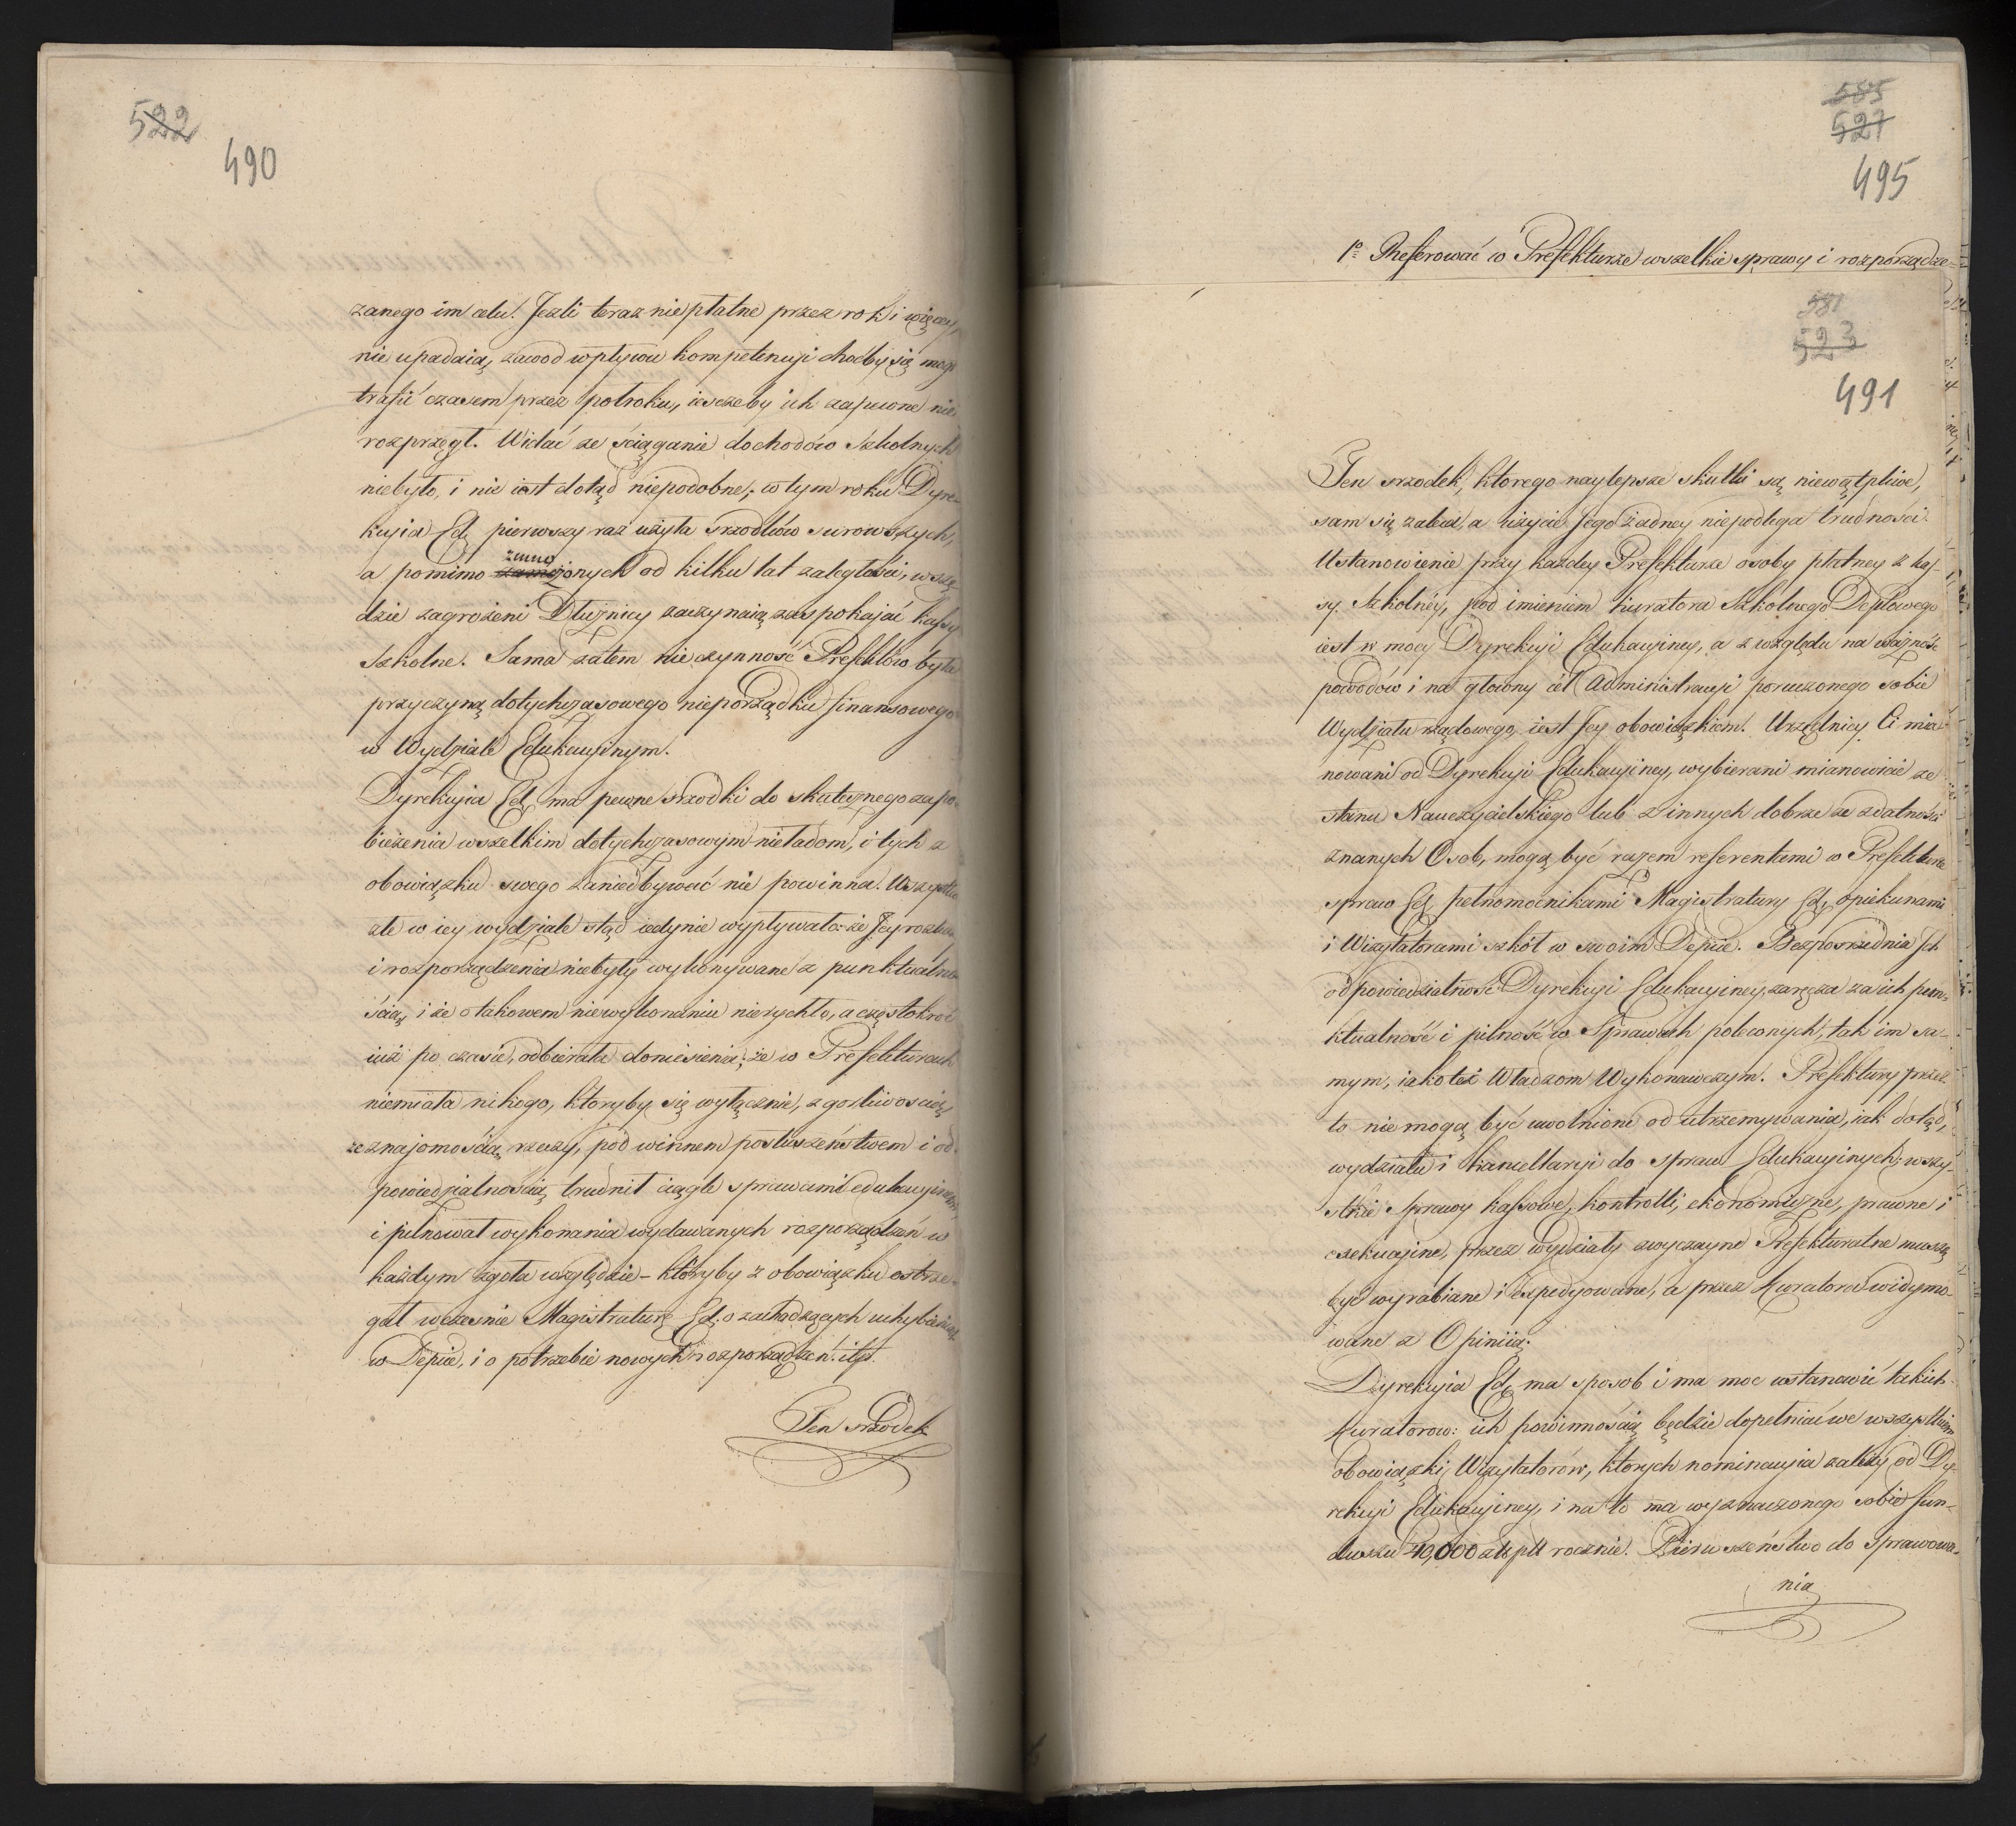 522
490
zanego im celu. Jeżli teraz nie płatne przez rok i więcey,
nie upadaią, zawod wpływu kompetencyi choćby się mógł
trafić czasem przez półroku, ieszczeby ich zapewne nie
rozprzągł. Widać ze ściąganie dochodów Szkolnych
niebyło, i nie iest dotąd niepodobne, w tym roku Dyre-
kcyia Ed. pierwszy raz użyła srzodków surowszych,
a pomimo zmnożonych od kilku lat zaległości, wszę-
dzie zagrożeni Dłużnicy zaczynaią zaspokajać kassy
Szkolne. Sama zatem nieczynność Prefektów była
przyczyną dotychczasowego nieporządku finansowego
w Wydziale Edukacyinym.
Dyrekcyia Ed. ma pewne srzodki do skutecznego zapo-
bieżenia wszelkim dotychczasowym nieładom, i tych z
obowiązku swego zaniedbywać nie powinna. Wszystko
złe w iey wydziale stąd iedynie wypływało: że Jey
i rozporządzenia niebyły wykonywane z punktualno-
ścią, i że o takowem niewykonaniu nierychło, a częstokroć
iuż po czasie, odbierała doniesienia; że w Prefekturach
niemiała nikogo, któryby się wyłącznie, z gorliwością,
ze znajomością rzeczy, pod winnem posłuszeństwem i od-
powiedzialnością, trudnił ciągle sprawami edukacyinemi,
i pilnował wykonania wydawanych rozporządzeń w
każdym zgoła względzie – któryby z obowiązku ostrze-
gał wcześnie Magistraturę Ed. o zachodzących uchybieniach
w Depcie, i o potrzebie nowych rozporządzeń. itp.
Ten srzodek
585
527
495
1º Referować w Prefekturze wszelkie sprawy i rozporządze-
581
523
491
Ten srzodek, którego naylepsze skutki są niewątpliwe,
sam się zaleca, a użycie Jego żadney niepodlega trudności.
Ustanowienie przy każdey Prefekturze osoby płatney z kas-
sy Szkolnéy, pod imieniem Kuratora Szkólnego Deptowego
iest w mocy Dyrekcyi Edukacyiney, a z względu na ważność
powodów i na głowny cel Administracyi poruczonego sobie
Wydziału rządowego, iest Jey obowiązkiem. Urzędnicy Ci mia-
nowani od Dyrekcyi Edukacyiney, wybierani mianowicie ze
stanu Nauczycielskiego lub z innych dobrze ze zdatności
znanych Osob, mogą być razem referentami w Prefekturze
spraw Ed. pełnomocnikami Magistratury Ed. opiekunami
i Wizytatorami szkół w swoim Depcie. Bezposrzednia Ich
odpowiedzialność Dyrekcyi Edukacyiney, zaręcza za ich pun-
ktualność i pilność w Sprawach poleconych, tak im sa-
mym, iakoteż Władzom Wykonawczym. Prefektury przez
to nie mogą być uwolnione od utrzemywania, iak dotąd,
wydziału i kancellaryi do spraw Edukacyinych; wszy-
stkie sprawy kassowe, kontrolli, ekonomiczne, prawne i
exekucyine, przez wydziały zwyczayne Prefekturalne muszą
być wyrabiane i expedyowane, a przez Kuratorów widymo-
wane z Opiniią.
Dyrekcyia Ed. ma sposob i ma moc ustanowić takich
Kuratorow: ich powinnością będzie dopełniać we wszystkiem
obowiązki Wizytatorów, których nominacyia zależy od Dy-
rekcyi Edukacyiney, i na to ma wyznaczonego sobie fun-
duszu 40,000 złłpll rocznie. Pierwszeństwo do sprawowa-
nia